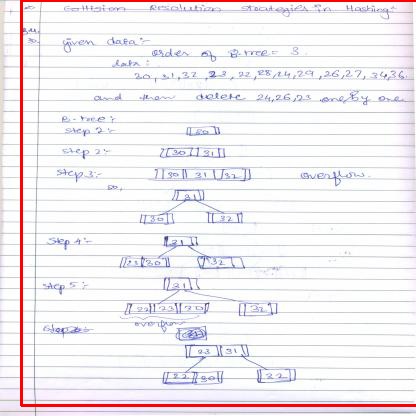 Collision Resolution strategies in Hashing:-
given data:-
order of B-tree = 3.
data:
30, 31, 32, 23, 22, 28, 24, 29, 26, 27, 34, 36.
and then delete 24, 26, 23 one by one
B-tree:-
Step 1:- 30
Step 2:- 30 31
Step 3:- 30 31 32 overflow.
so,
31
30 32
Step 4:- 31
23 30 32
Step 5:- 31
22 23 30 32
overflow
23 31
22 30 32